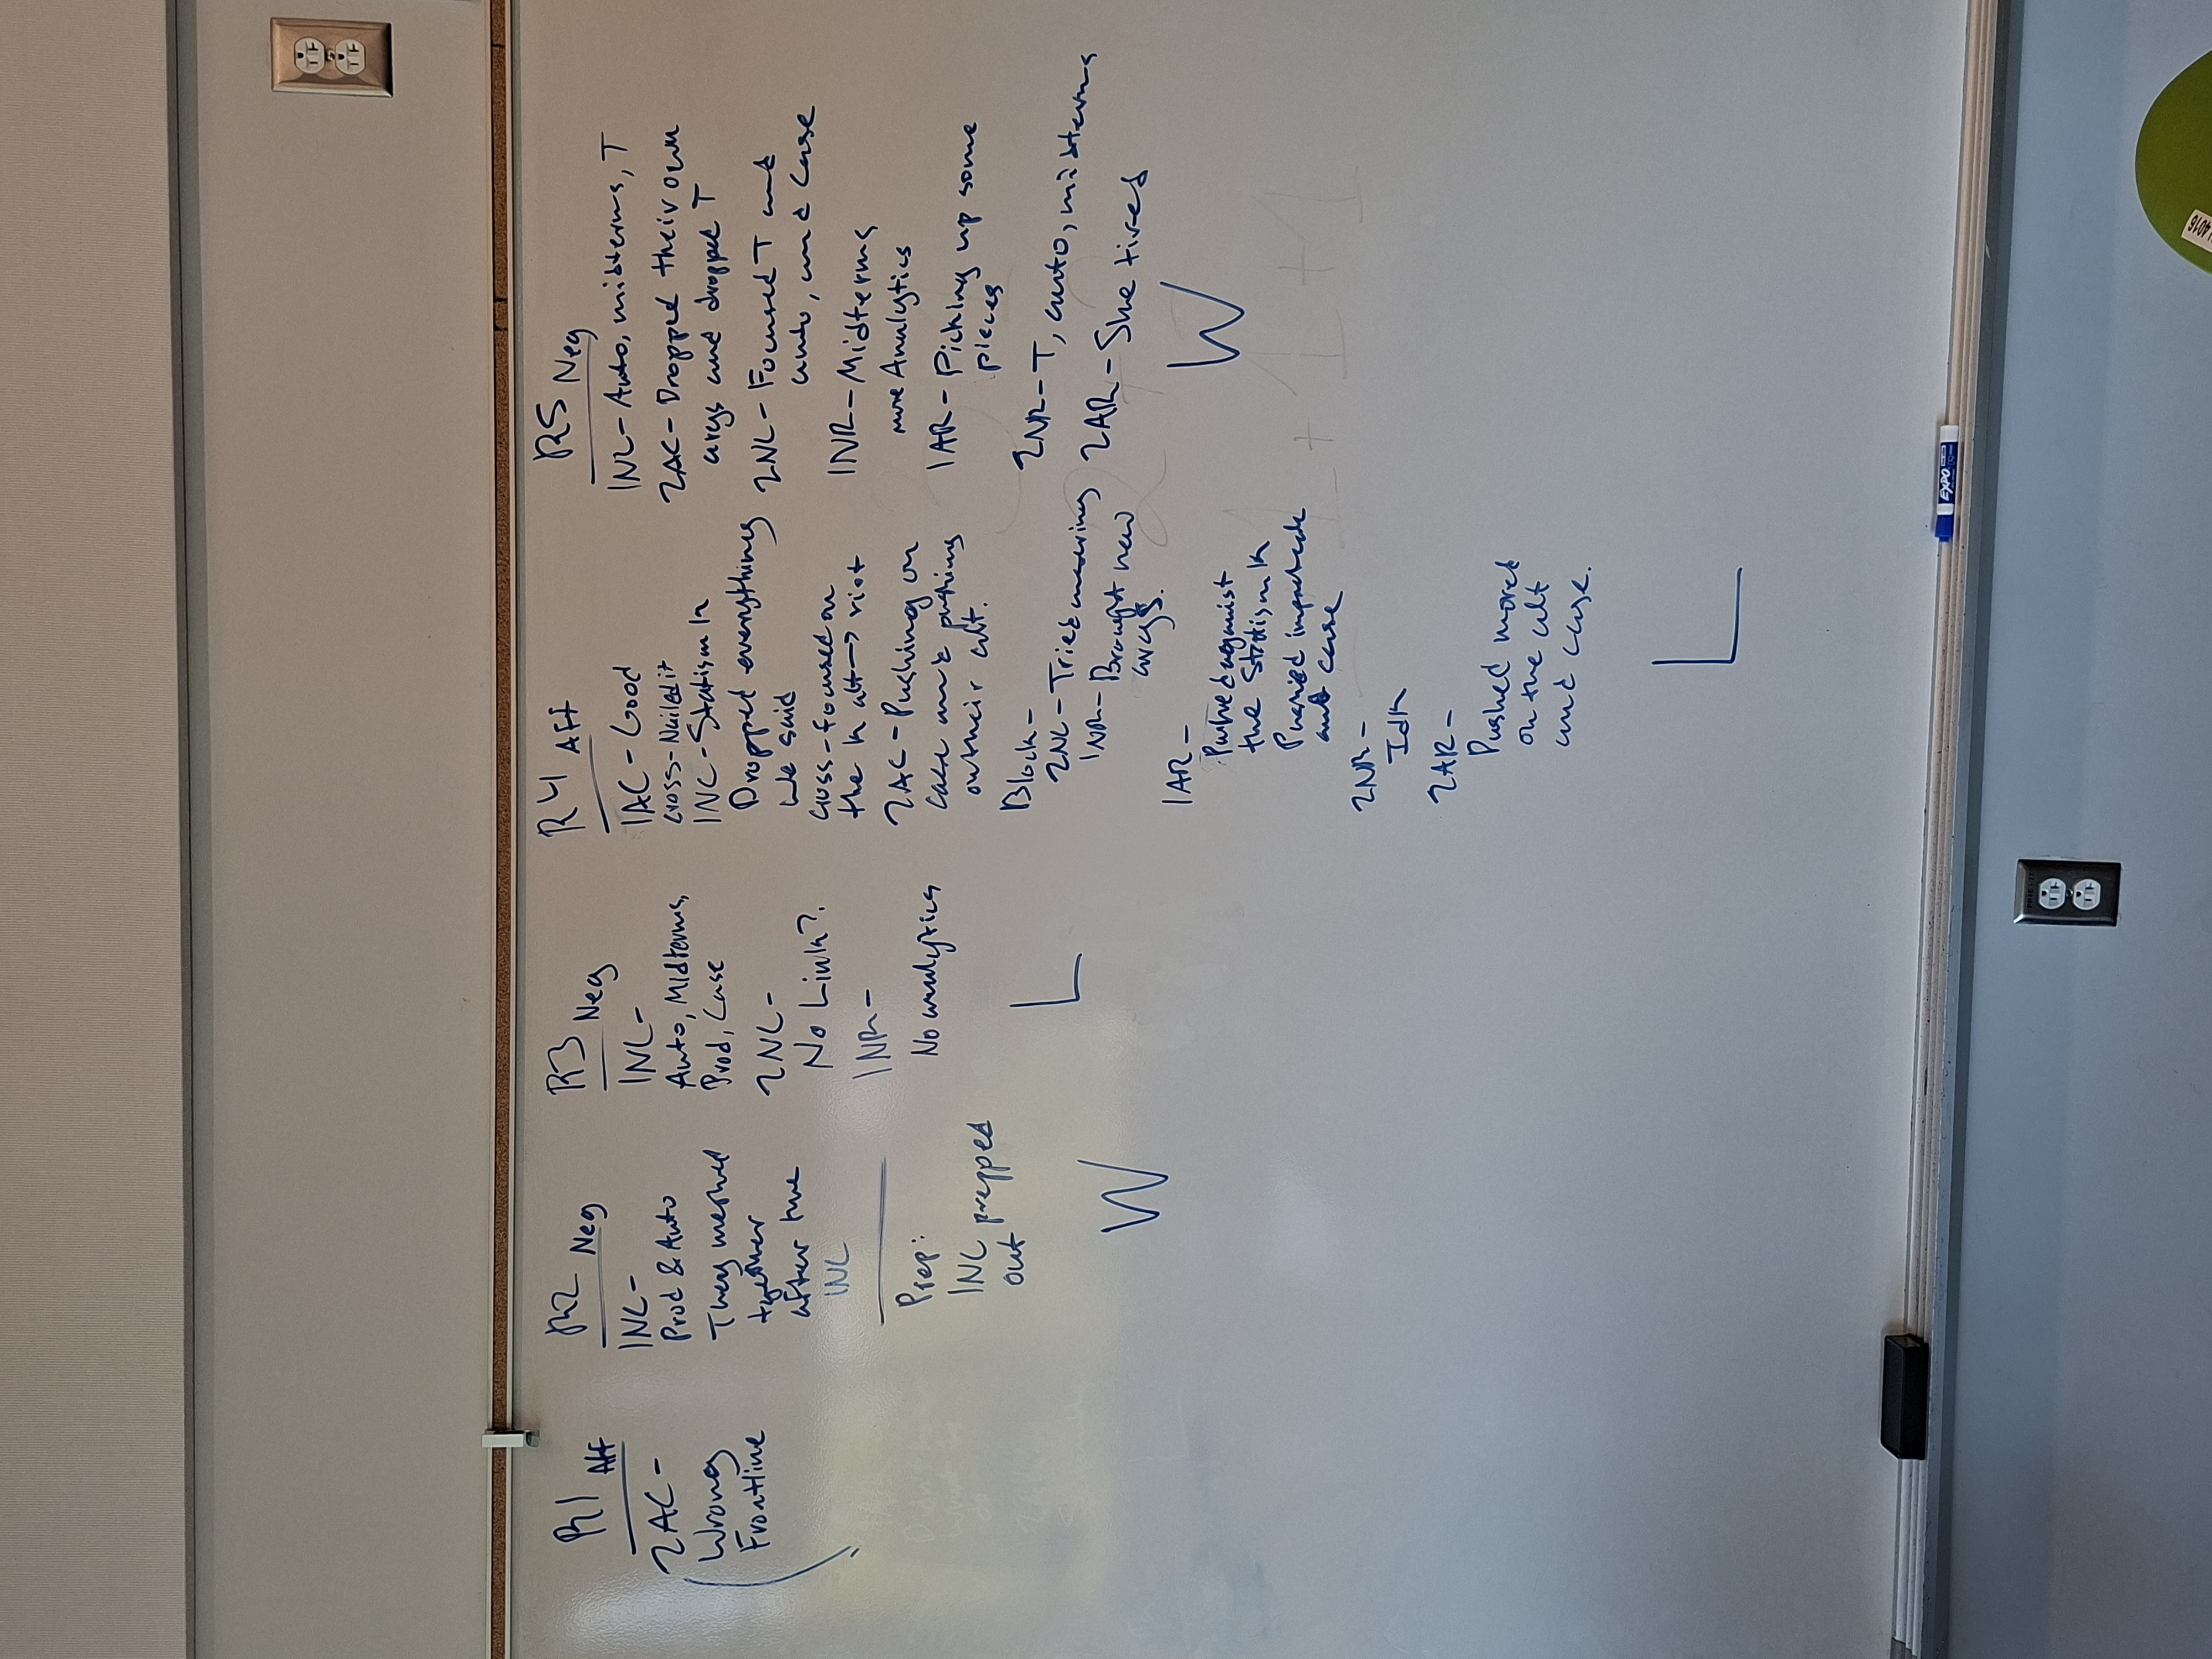 R1 Aff
2AC -
Wrong
Frontline
R2 Neg
1NC -
Prod & Auto
They meshed
together
after the
1NC
Prep:
1NC prepped
out
W
R3 Neg
1NC -
Auto, Midterms,
Prod, Case
2NC -
No Link?
1NR -
No analytics
L
R4 Aff
1AC - Good
cross - Nailed it
1NC - Statism K
Dropped everything
we said
cross - focused on
the K alt → riot
2AC - Pushing on
case and pushing
on their alt.
Block -
2NC - Tried
1NR - Brought new
args.
1AR -
Pushed against
the Statism K
Pushed impacts
and case
2NR -
Idk
2AR -
Pushed more
on the alt
and case.
L
R5 Neg
1NC - Auto, midterms, T
2AC - Dropped their own
args and dropped T
2NC - Focused T and
auto, and case
1NR - Midterms
more Analytics
1AR - Picking up some
pieces
2NR - T, auto, midterms
2AR - She tired
W
EXPO
4016